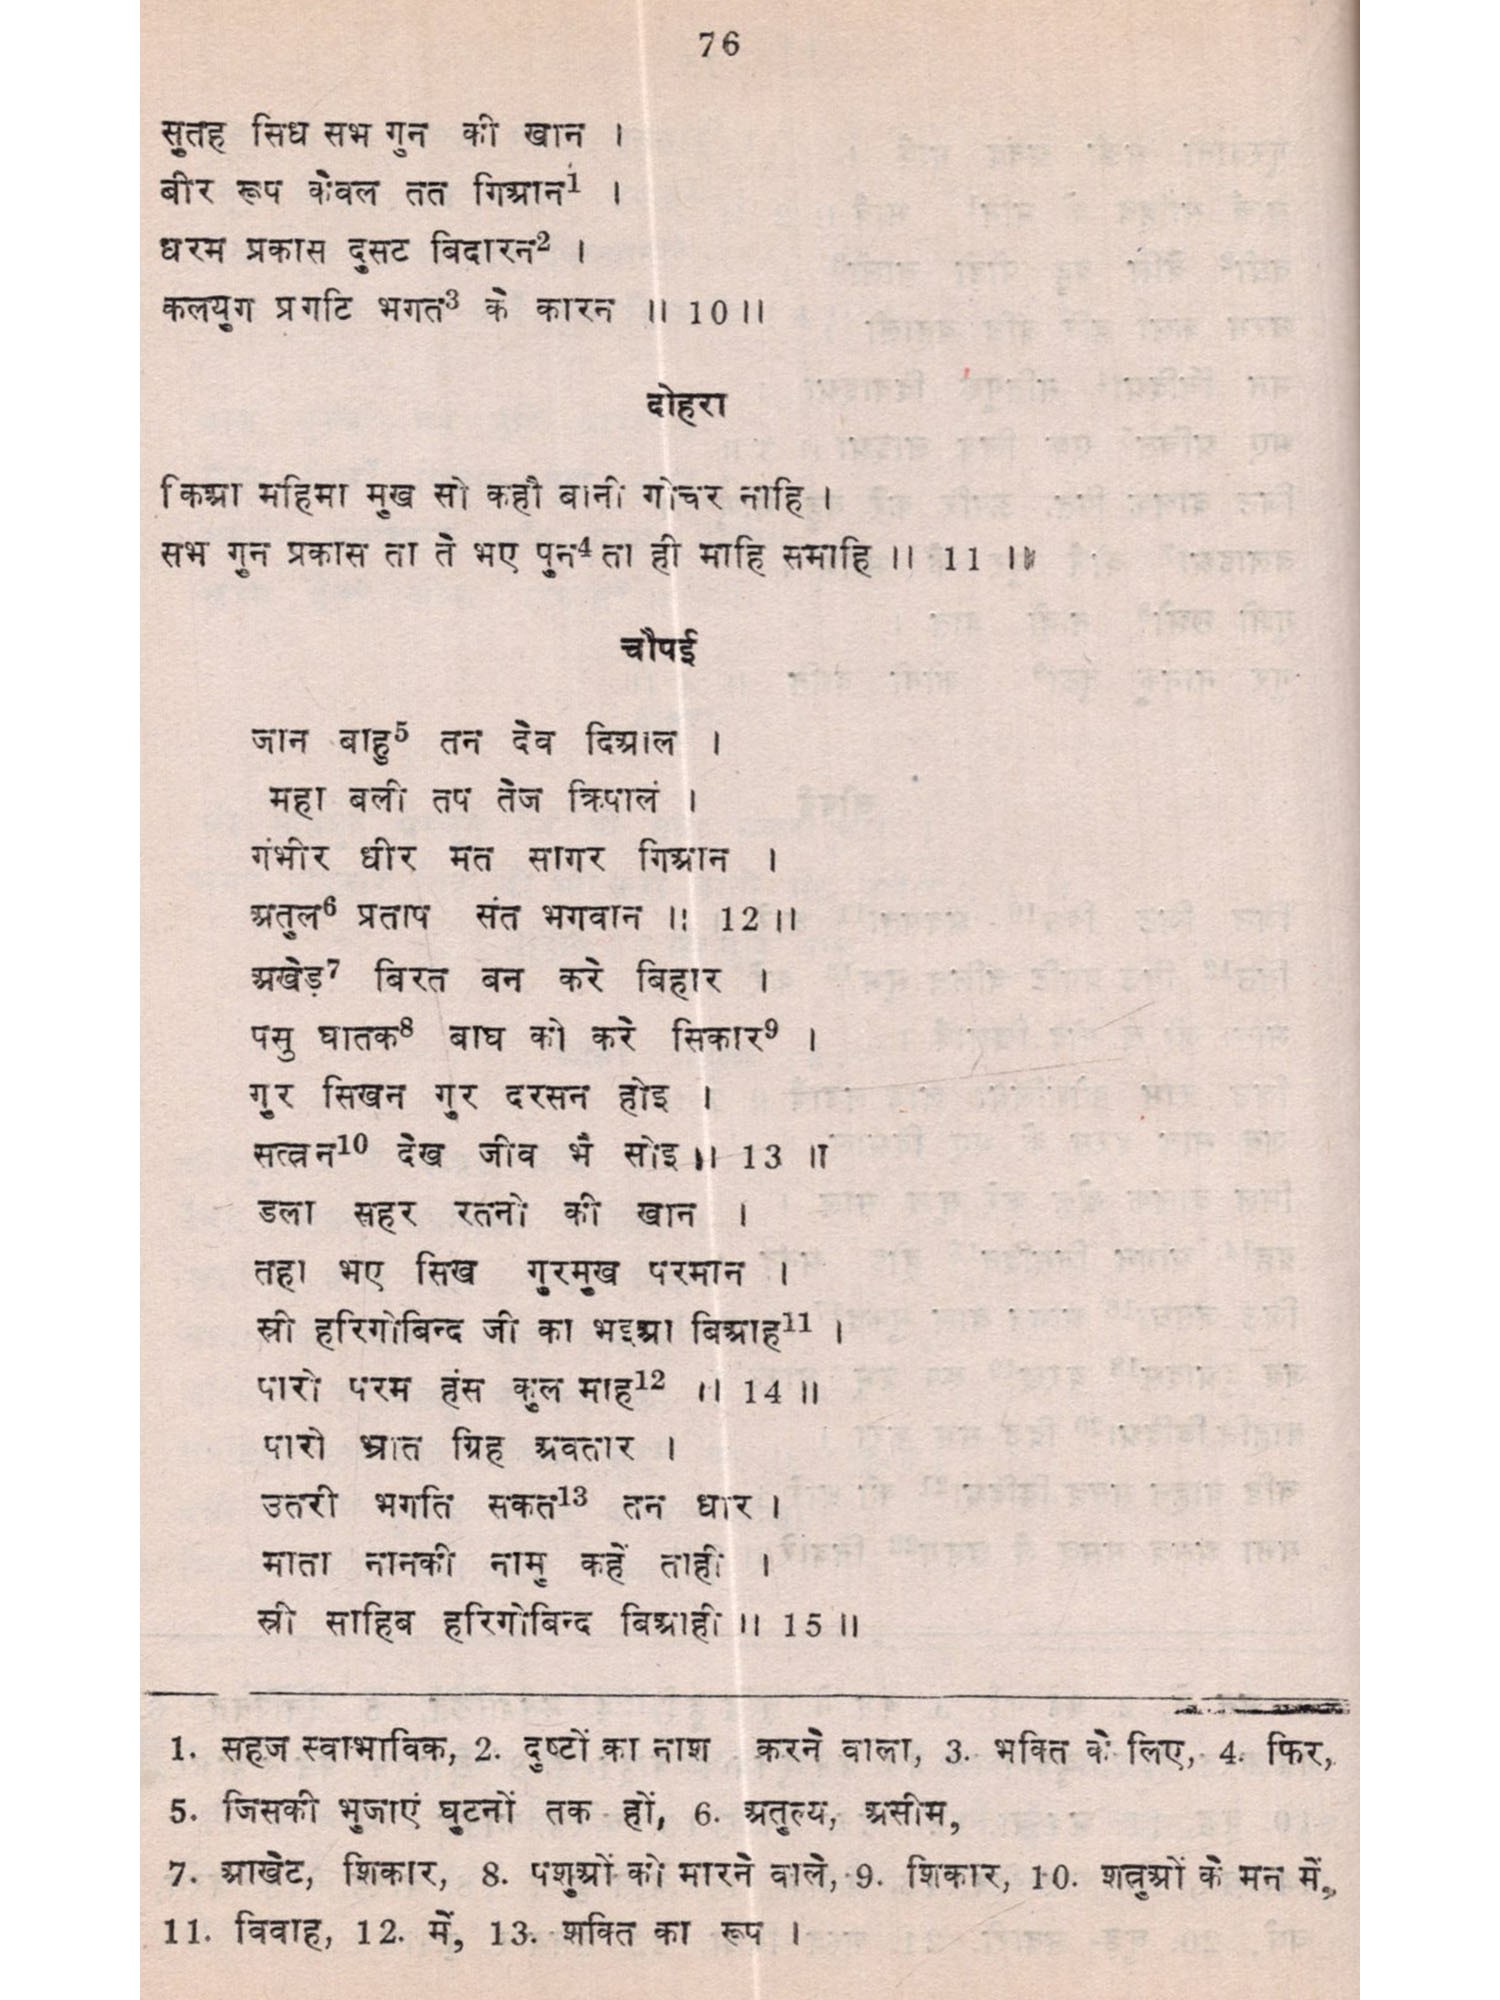 76
सुतह सिध सभ गुन की खान ।
बीर रूप केवल तत गिआन¹ ।
धरम प्रकास दुसट बिदारन² ।
कलयुग प्रगटि भगत³ के कारन ॥ 10॥
दोहरा
किआ महिमा मुख सो कहौ बानी गोचर नाहि ।
सभ गुन प्रकास ता ते भए पुन⁴ ता ही माहि समाहि ॥ 11 ॥
चौपई
जान बाहु⁵ तन देव दिआल ।
महा बली तप तेज क्रिपालं ।
गंभीर धीर मत सागर गिआन ।
अतुल⁶ प्रताप संत भगवान ॥ 12 ॥
अखेड़⁷ बिरत बन करे बिहार ।
पसु घातक⁸ बाघ को करे सिकार⁹ ।
गुर सिखन गुर दरसन होइ ।
सत्रन¹⁰ देख जीव भै सोइ ॥ 13 ॥
डला सहर रतनो की खान ।
तहा भए सिख गुरमुख परमान ।
स्री हरिगोबिन्द जी का भइआ बिआह¹¹ ।
पारो परम हंस कुल माह¹² ॥ 14 ॥
पारो भ्रात ग्रिह अवतार ।
उतरी भगति सकत¹³ तन धार ।
माता नानकी नामु कहें ताही ।
स्री साहिब हरिगोबिन्द बिआही ॥ 15 ॥
1. सहज स्वाभाविक, 2. दुष्टों का नाश करने वाला, 3. भक्ति के लिए, 4. फिर,
5. जिसकी भुजाएं घुटनों तक हों, 6. अतुल्य, असीम,
7. आखेट, शिकार, 8. पशुओं को मारने वाले, 9. शिकार, 10. शत्रुओं के मन में,
11. विवाह, 12. में, 13. शक्ति का रूप ।